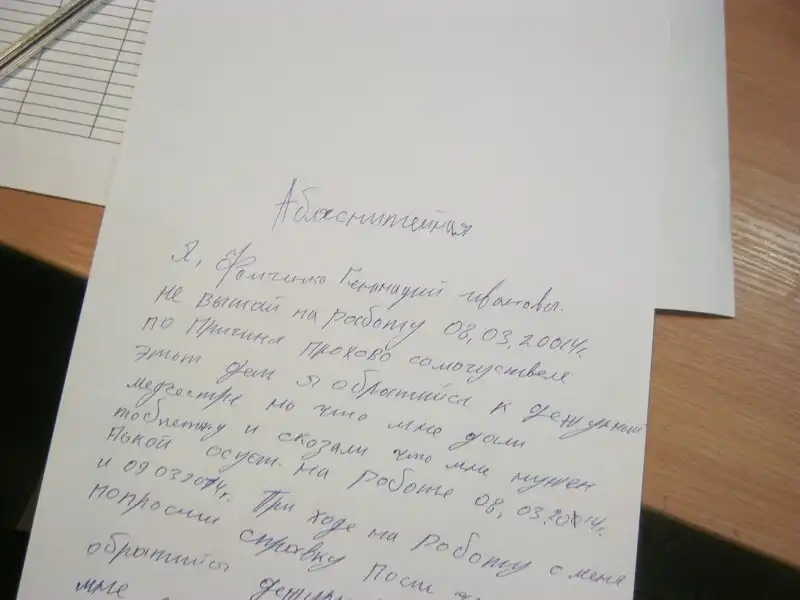 Абласнитейная
Я, Фомченко Геннадий ивановы.
не вышай на работу 08,03,20014г.
по Причина прохово самочуствее
этот ден я обратийся к дежурный
медсестре на что мне дали
таблетку и сказали что мне нужен
Пакой осуст. на работе 08, 03.2014г.
и 09 03 2014г. При ходе на работу с меня
попросили справку Посли
обратийся дежурн
мне